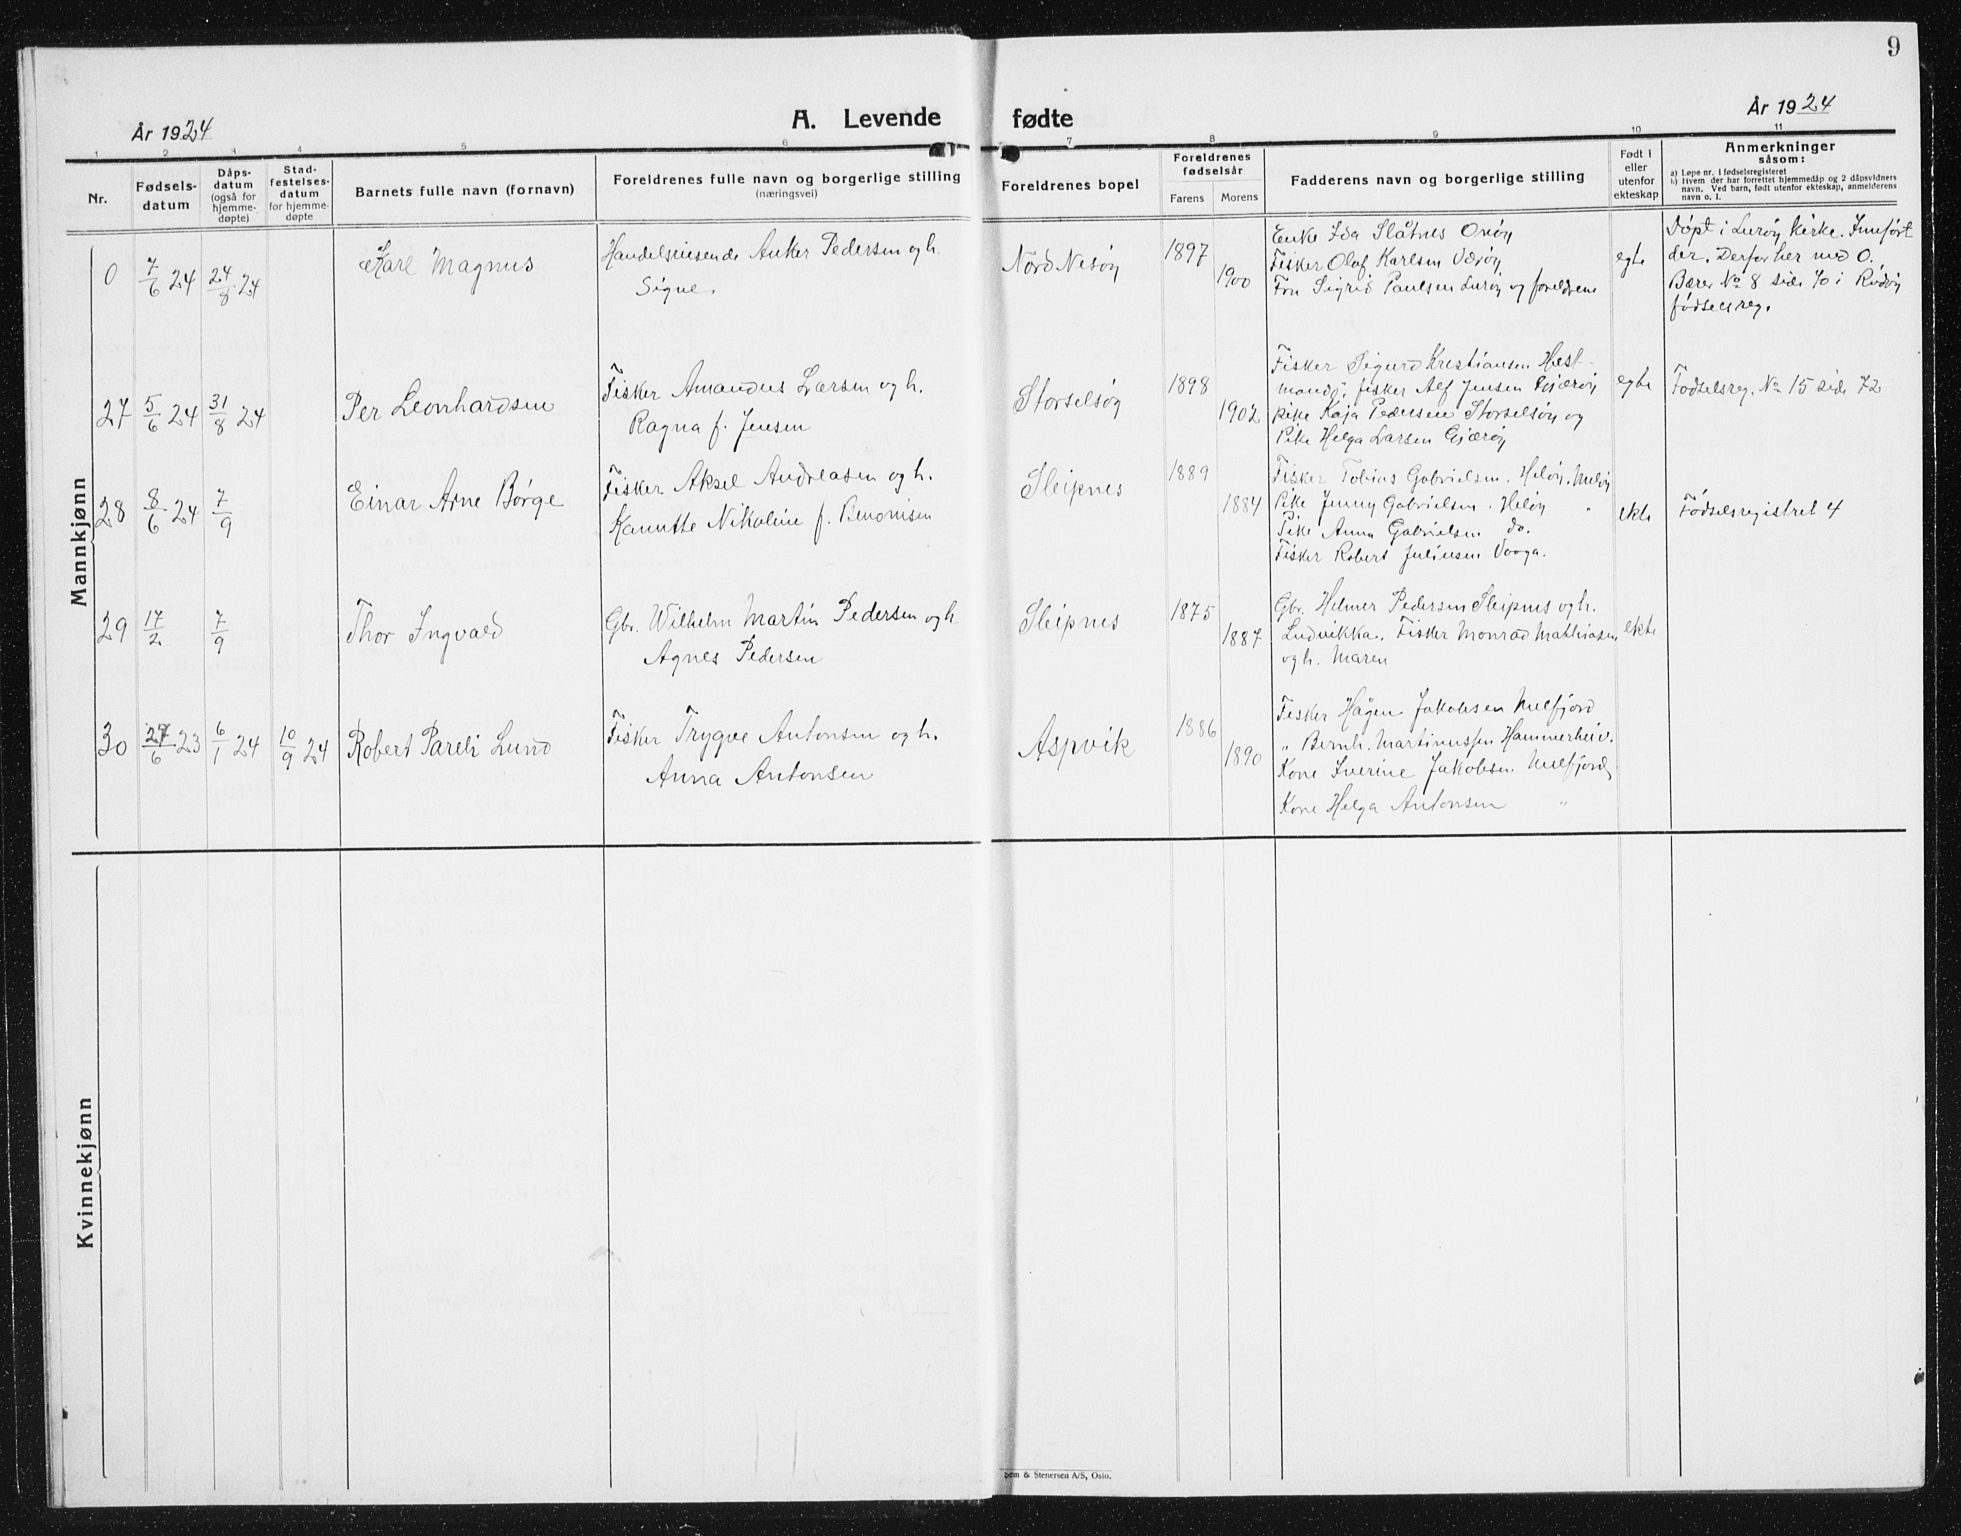 9
År 1924
A. Levende fødte
År 1924
1 2 3 4 5 6 7 8 9 10 11
Nr.
Fødsels-
datum
Dåps-
datum
(også for
hjemme-
døpte)
Stad-
festelses-
datum
for hjemme-
døpte
Barnets fulle navn (fornavn)
Foreldrenes fulle navn og borgerlige stilling
(næringsvei)
Foreldrenes bopel
Foreldrenes
fødselsår
Farens
Morens
Fadderens navn og borgerlige stilling
Født i
eller
utenfor
ekteskap
Anmerkninger
såsom:
a) Løpe nr. i fødselsregisteret
b) Hvem der har forrettet hjemmedåp og 2 dåpsvidners
navn. Ved barn, født utenfor ekteskap, anmelderens
navn o. l.
Mannkjønn
0
7/6 24
24/8 24
Karl Magnus
Handelsreisende Anker Pedersen og h.
Signe.
Nord Nesøy
1897
1900
Enke Ida Slåtnes Onøy
Fisker Olaf Karlsen Værøy
Fru Sigrid Paulsen Lurøy og foreldrene
egte
Døpt i Lurøy kirke. Innført
der. Derfor her med O.
Bærer No 8 side 70 i Rødøy
fødselsreg.
27
5/6 24
31/8 24
Per Leonhardsen
Fisker Amandus Larsen og h.
Ragna f. Jensen
Storselsøy
1898
1902
Fisker Sigurd Kristiansen Hest-
mandø, fisker Alf Jensen Gjærøy
pike Kaja Pedersen Storselsøy og
Pike Helga Larsen Gjærøy
egte
Fødselsreg. No 15 side 72
28
8/6 24
7/9
Einar Arne Børge
Fisker Aksel Andreasen og h.
Hanutte Nikoline f. Benonisen
Sleipnes
1889
1884
Fisker Tobias Gabrielsen. Heløy. Meløy
Pike Jenny Gabrielsen. Heløy "
Pike Anna Gabrielsen do.
Fisker Robert Juliusen Vaaga.
ekte
Fødselsregistret 4
29
17/2
7/9
Thor Ingvald
Gbr. Wilhelm Martin Pedersen og h
Agnes Pedersen
Sleipnes
1875
1887
Gbr. Helmer Pedersen Sleipnes og h.
Ludvikka. Fisker Monrad Mathiasen
og h. Maren
ekte
30
27/6 23
6/1 24
10/9 24
Robert Pareli Lund
Fisker Trygve Antonsen og h.
Anna Antonsen
Aspvik
1886
1890
Fisker Hågen Jakobsen Melfjord
" Bernh. Martinussen Hammerheiv.
Kone Iverine Jakobsen. Melfjord
Kone Helga Antonsen "
Kvinnekjønn
& Stenersen A/S, Oslo.